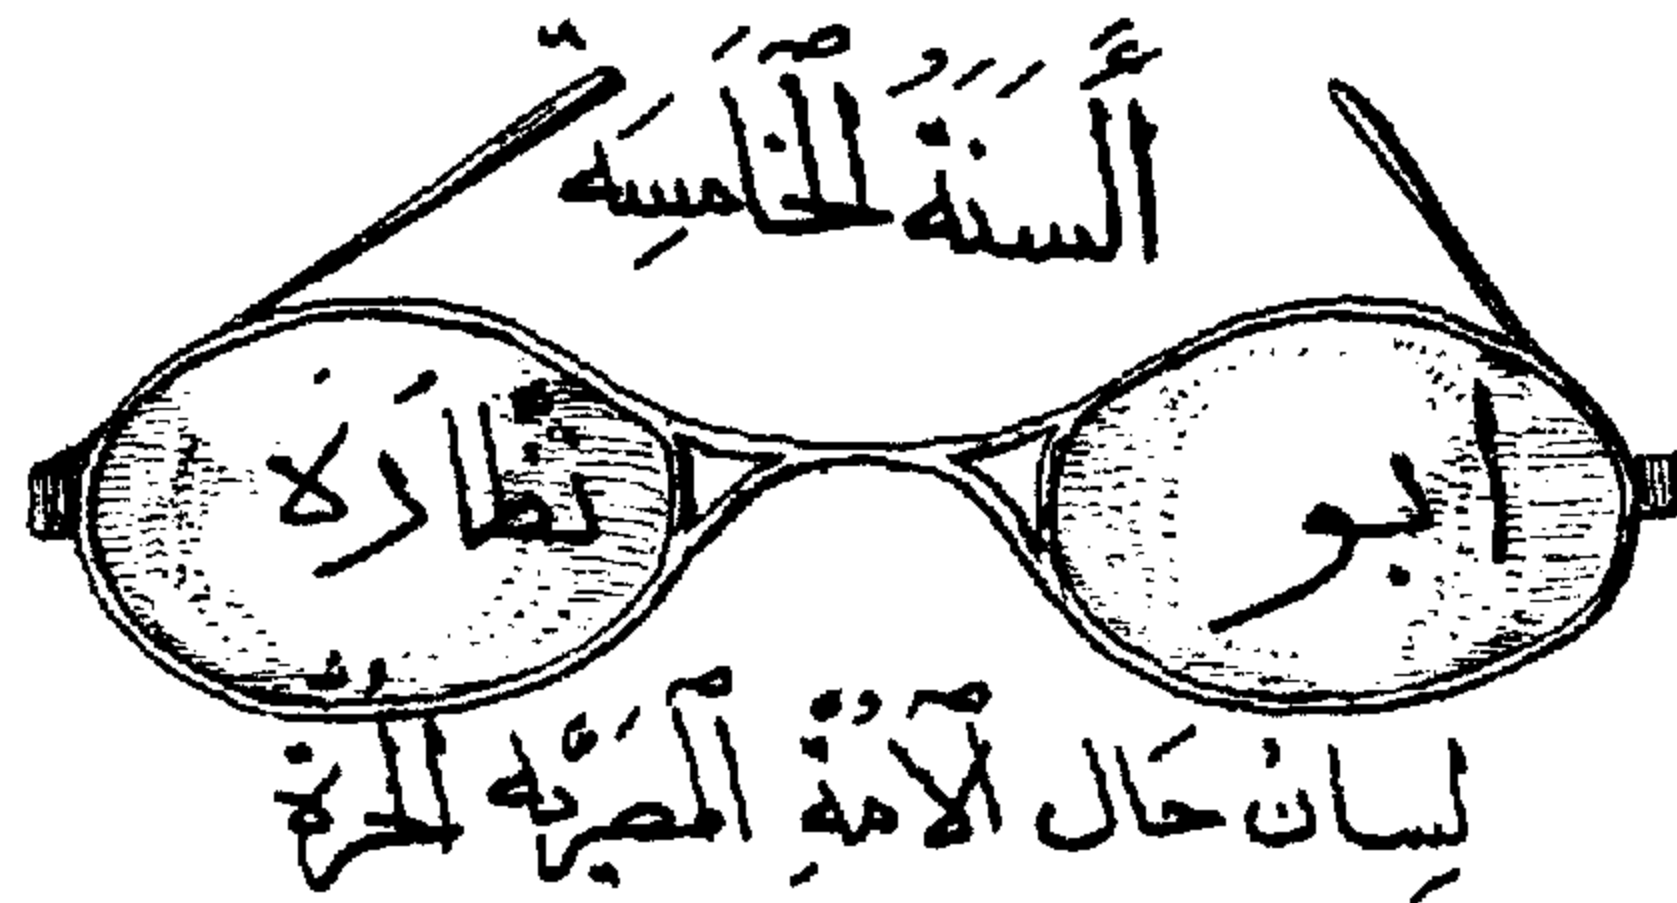 أَلسَنَةُ الخَامِسَه
ابو نظّارَة
لِسانْ حَال الاُمّةِ المصرِيَّه الحُرّة